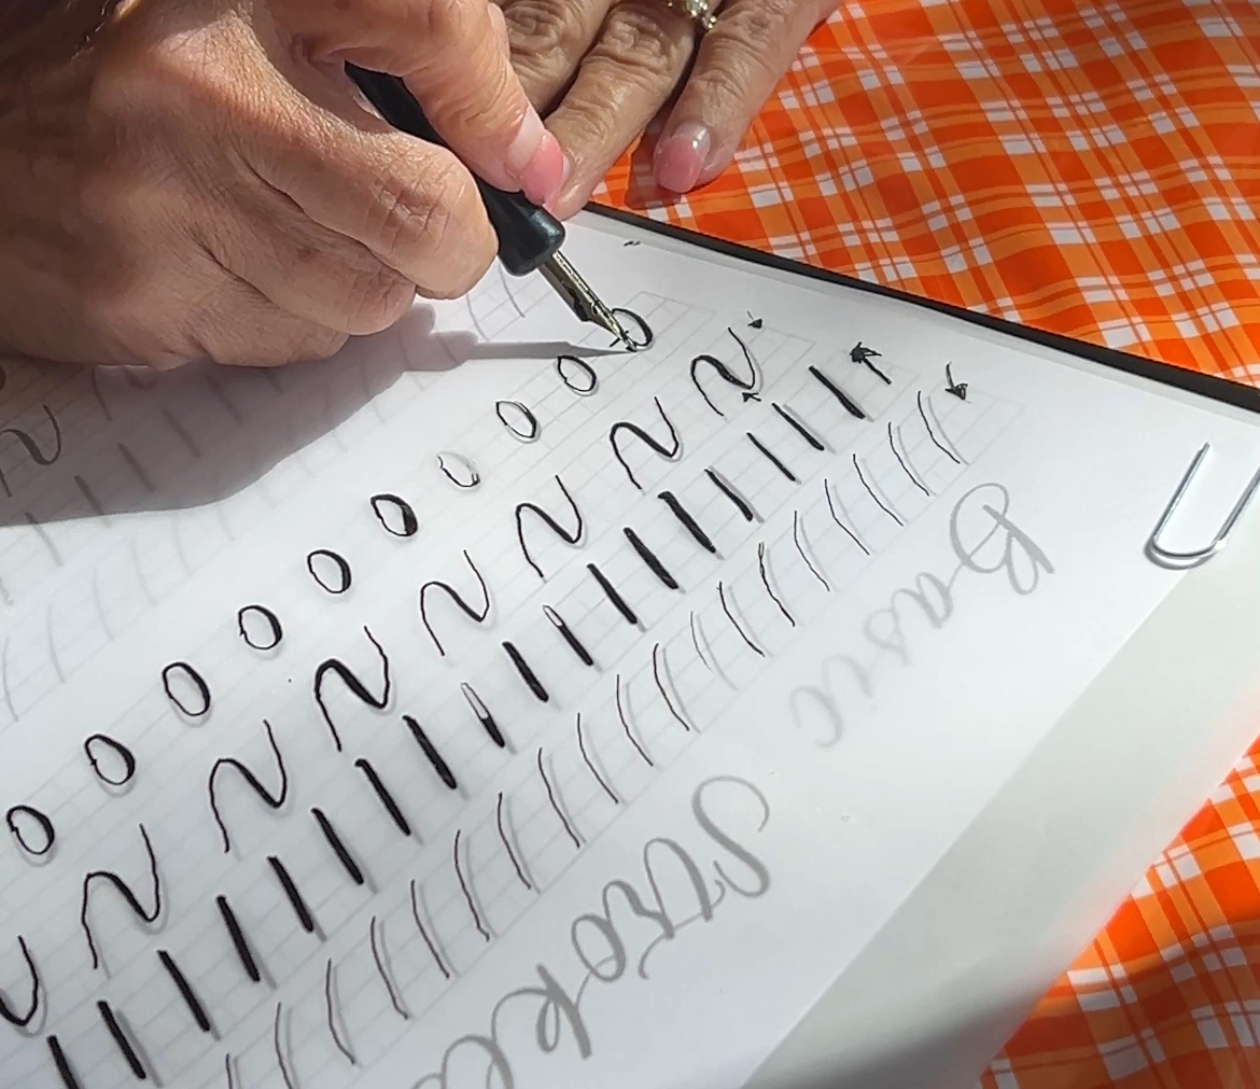 Basic Stroke